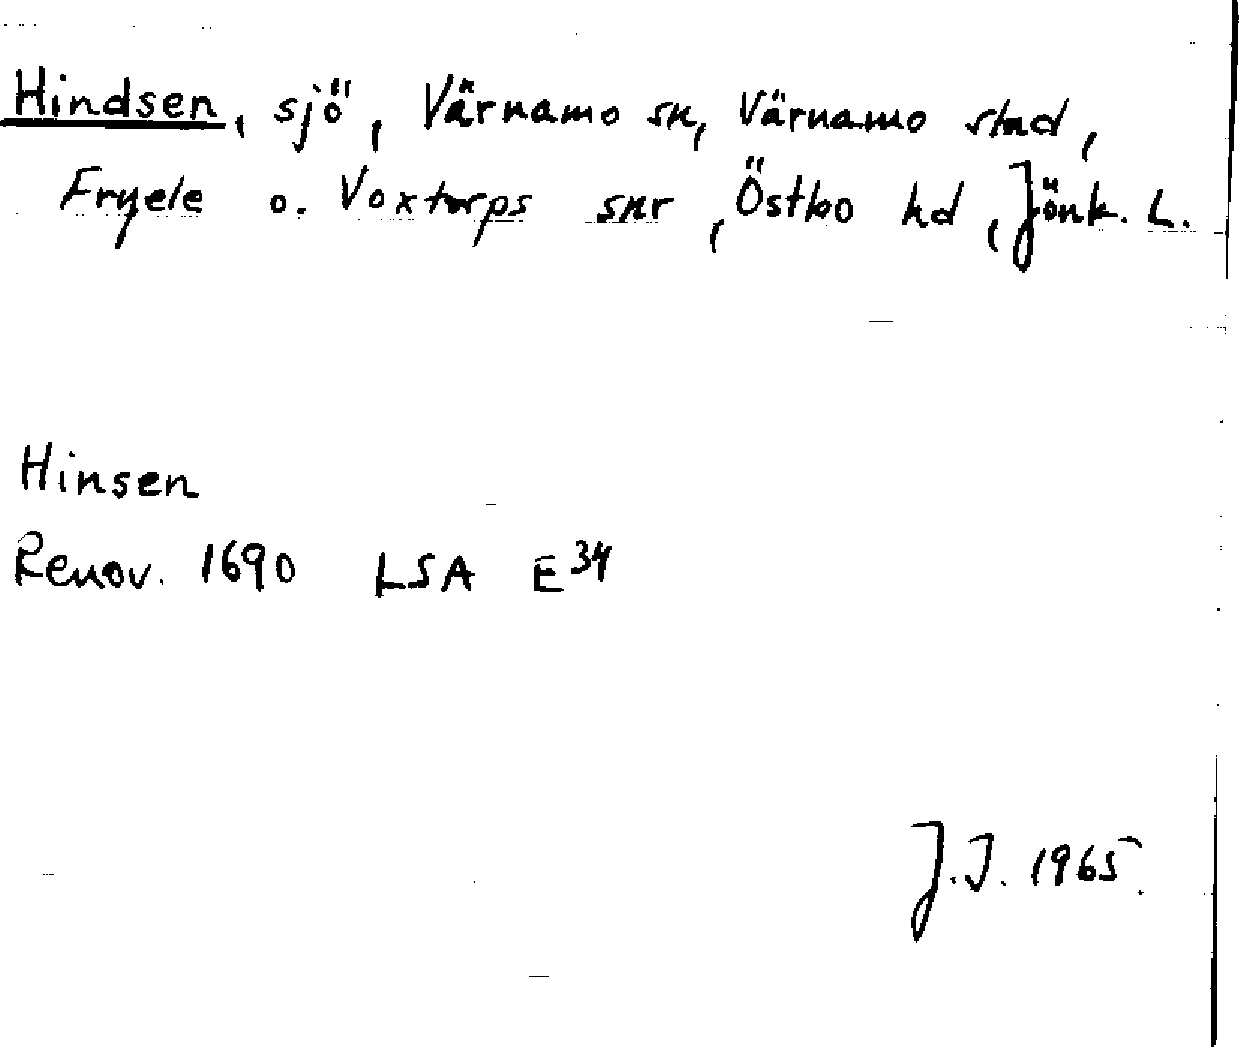 Hindsen, sjö, Värnamo sn, Värnamo stad,
Fryele o. Voxtorps snr, Östbo hd, Jönk. L.
Hinsen
Renov. 1690 LSA E34
J.J. 1965.